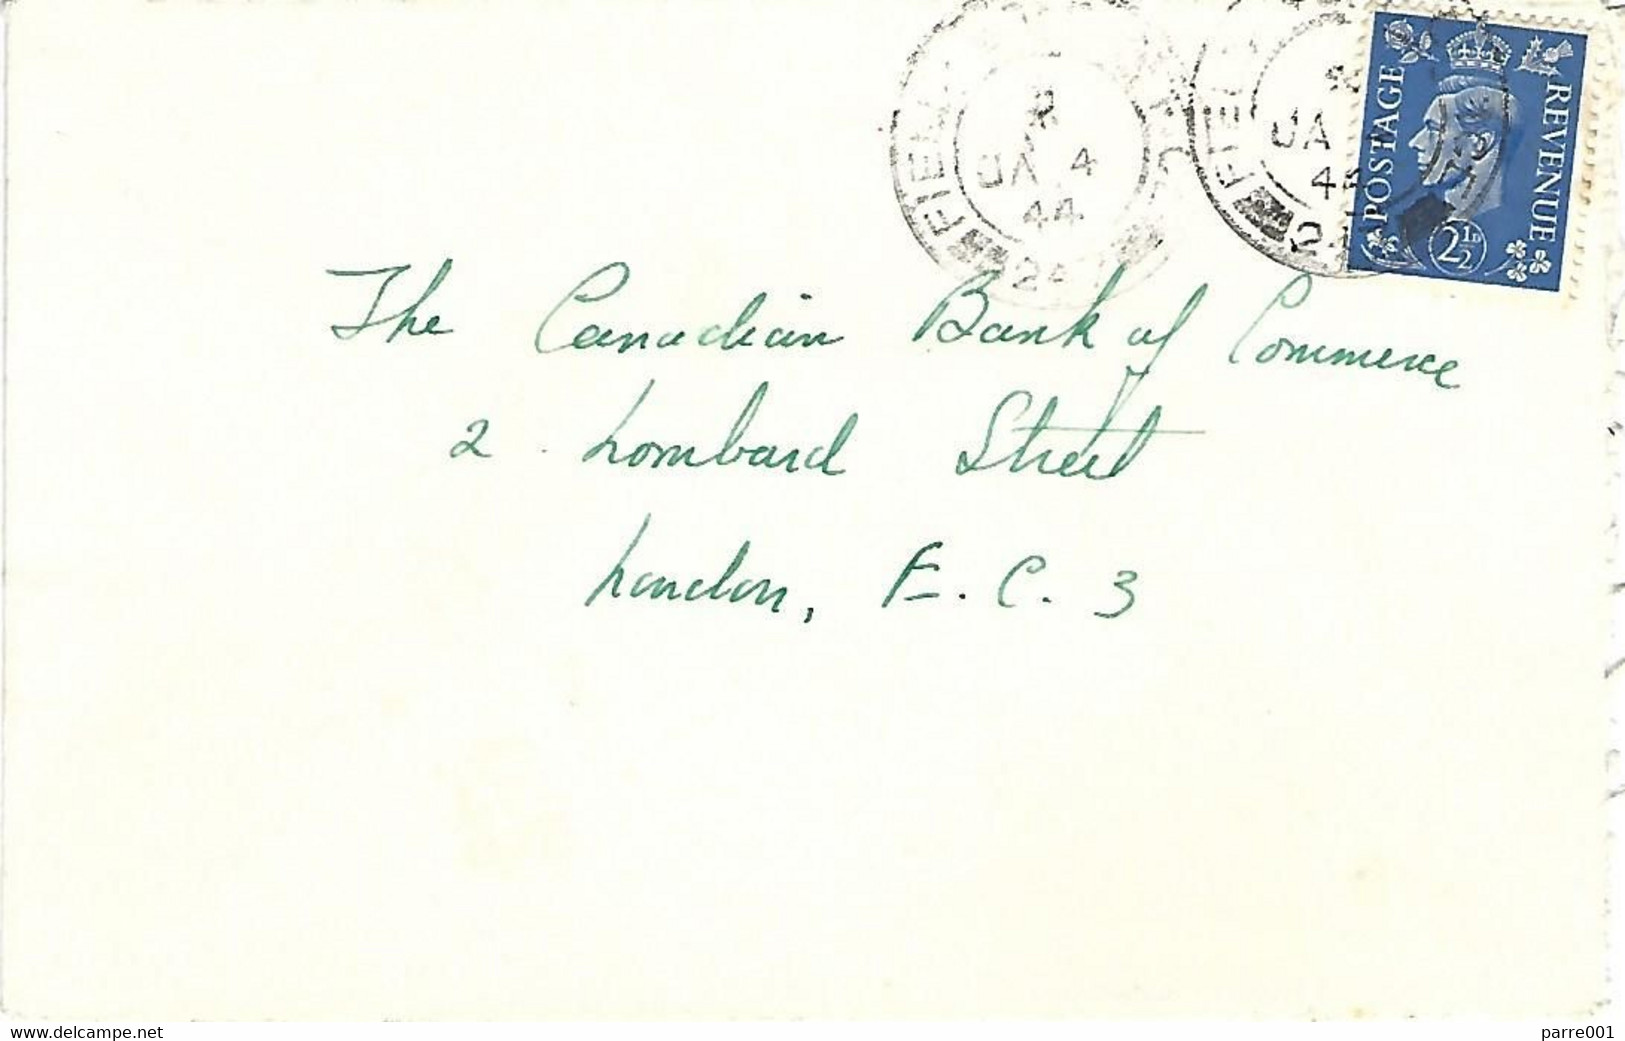 FIEL
JA 4
44
FIEL
JA
44
POSTAGE
REVENUE
2½D
The Canadian Bank of Commerce
2 Lombard Street
London, E.C.3
www.delcampe.net
parre001